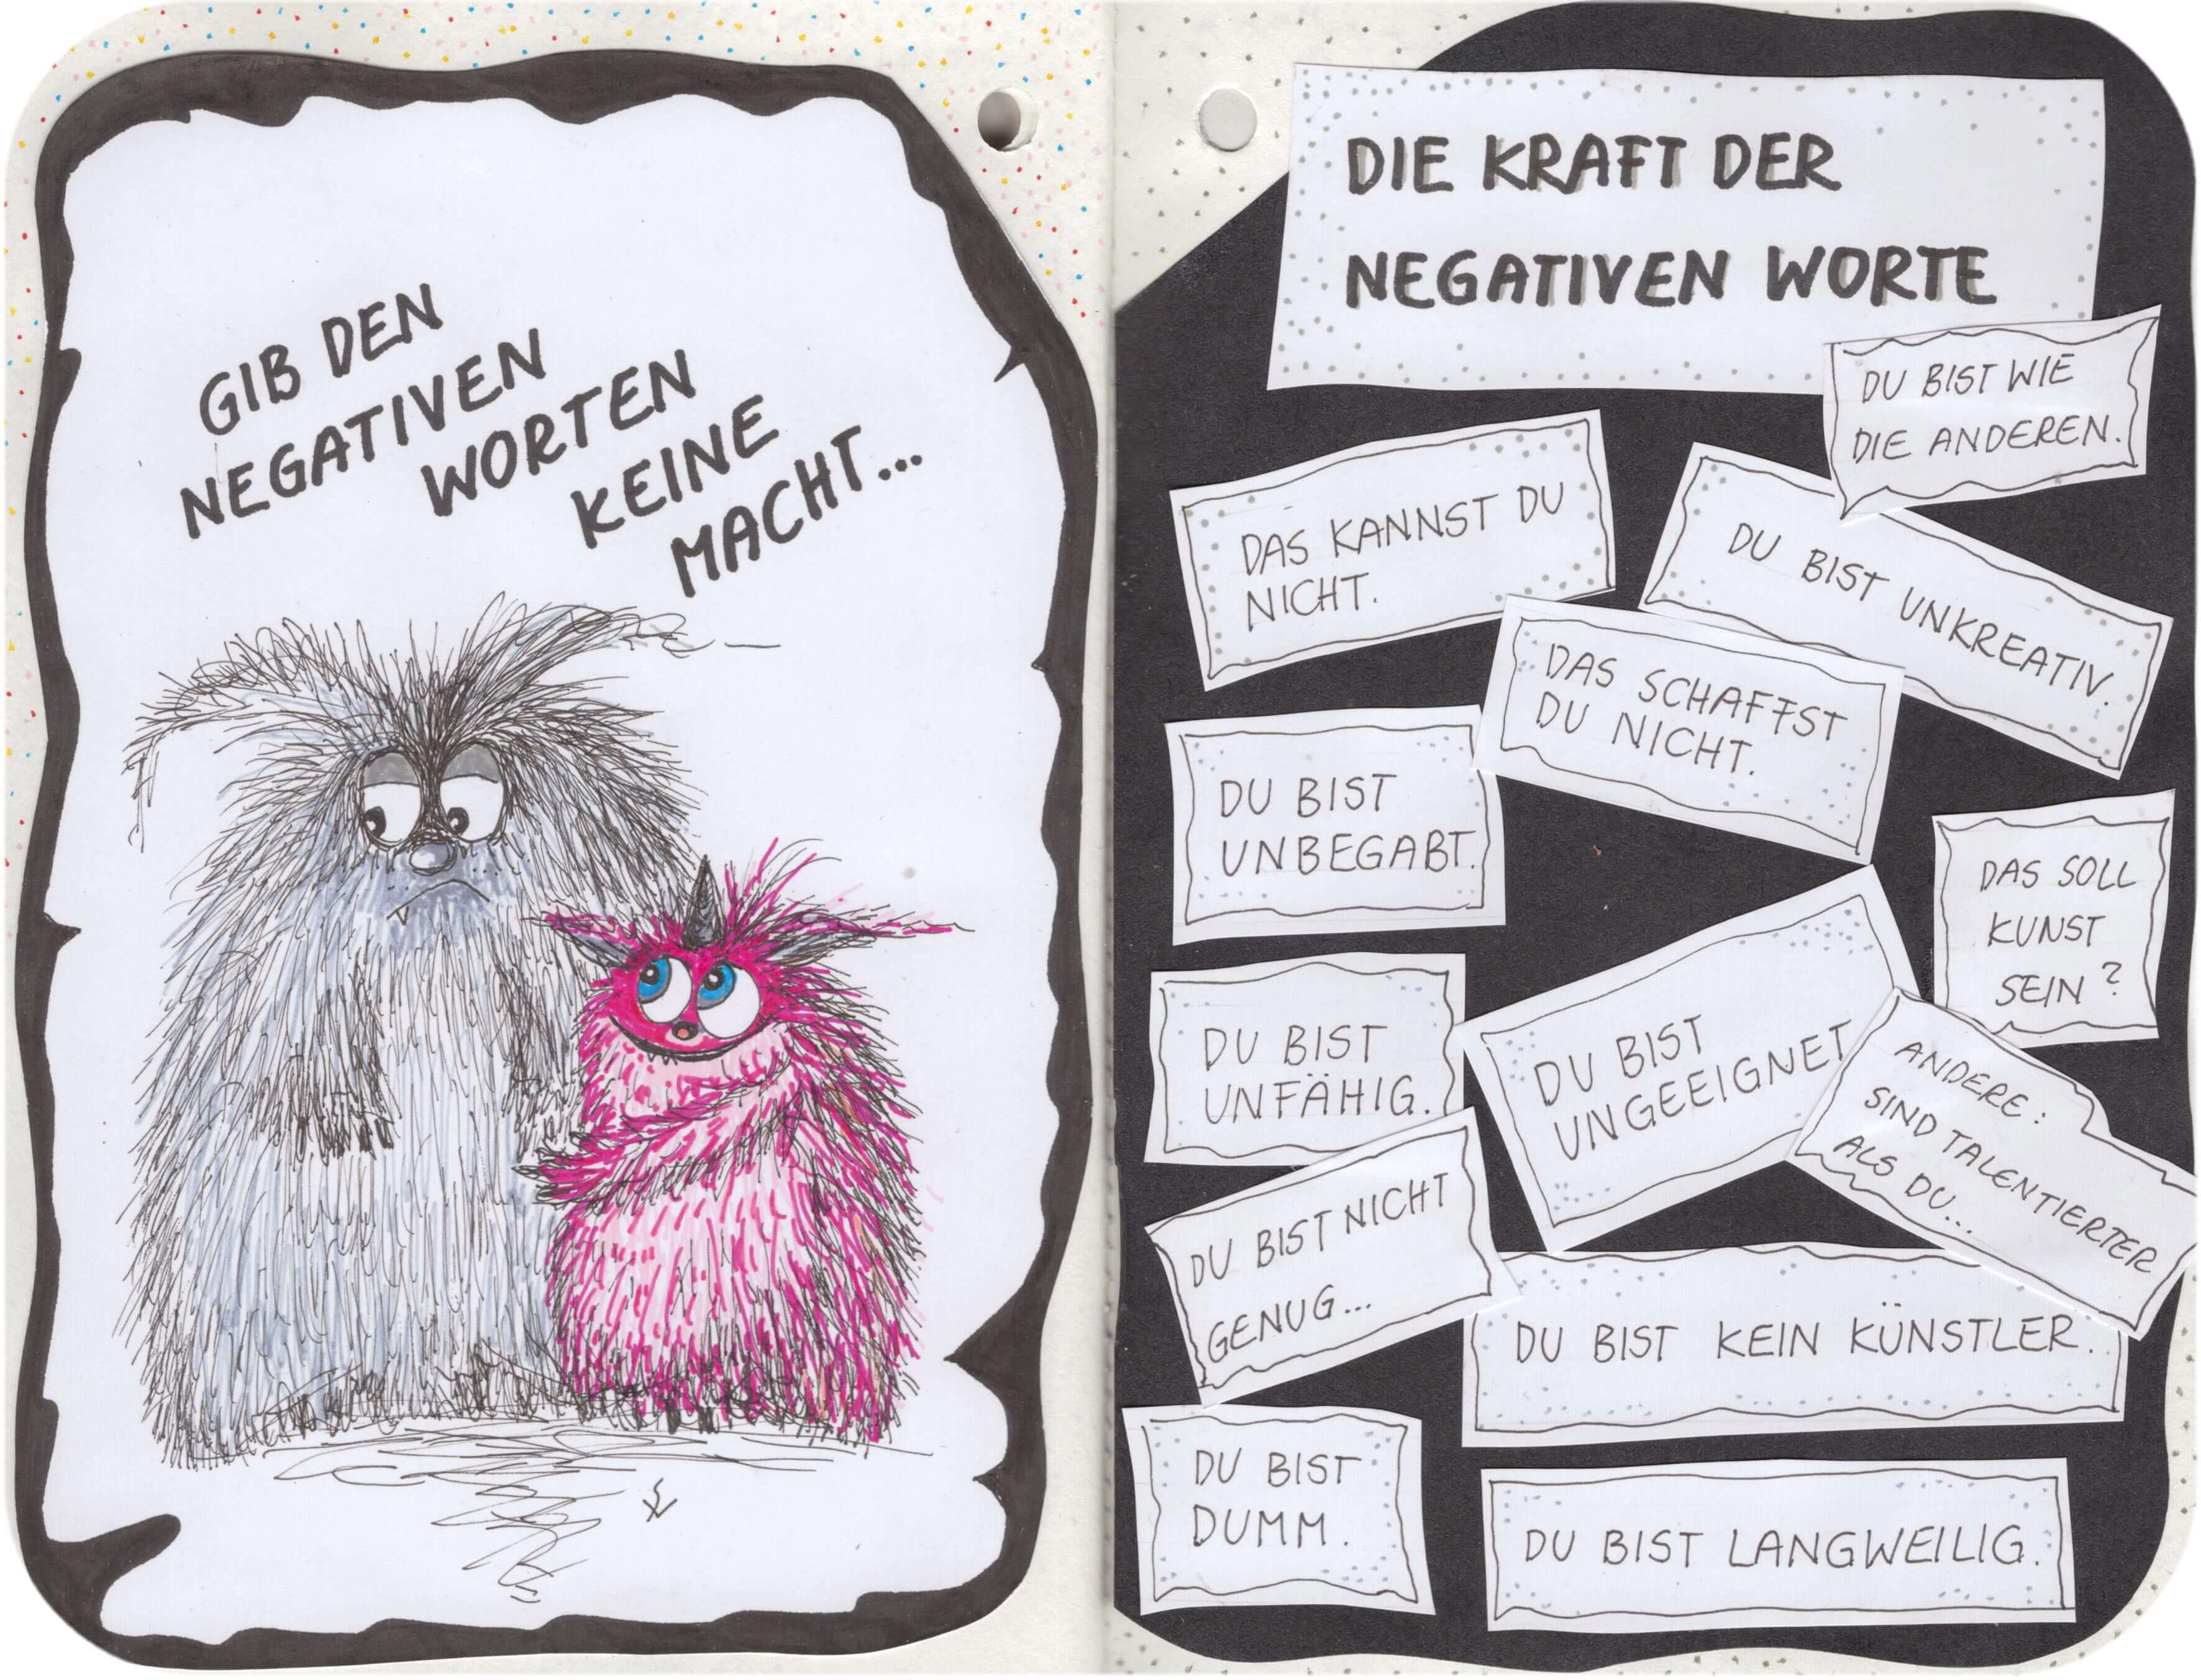 GIB DEN
NEGATIVEN
WORTEN
KEINE
MACHT...
DIE KRAFT DER
NEGATIVEN WORTE
DU BIST WIE
DIE ANDEREN.
DAS KANNST DU
NICHT.
DU BIST UNKREATIV.
DAS SCHAFFST
DU NICHT.
DU BIST
UNBEGABT.
DAS SOLL
KUNST
SEIN?
DU BIST
UNFÄHIG.
DU BIST
UNGEEIGNET
ANDERE:
SIND TALENTIERTER
ALS DU...
DU BIST NICHT
GENUG...
DU BIST KEIN KÜNSTLER.
DU BIST
DUMM.
DU BIST LANGWEILIG.